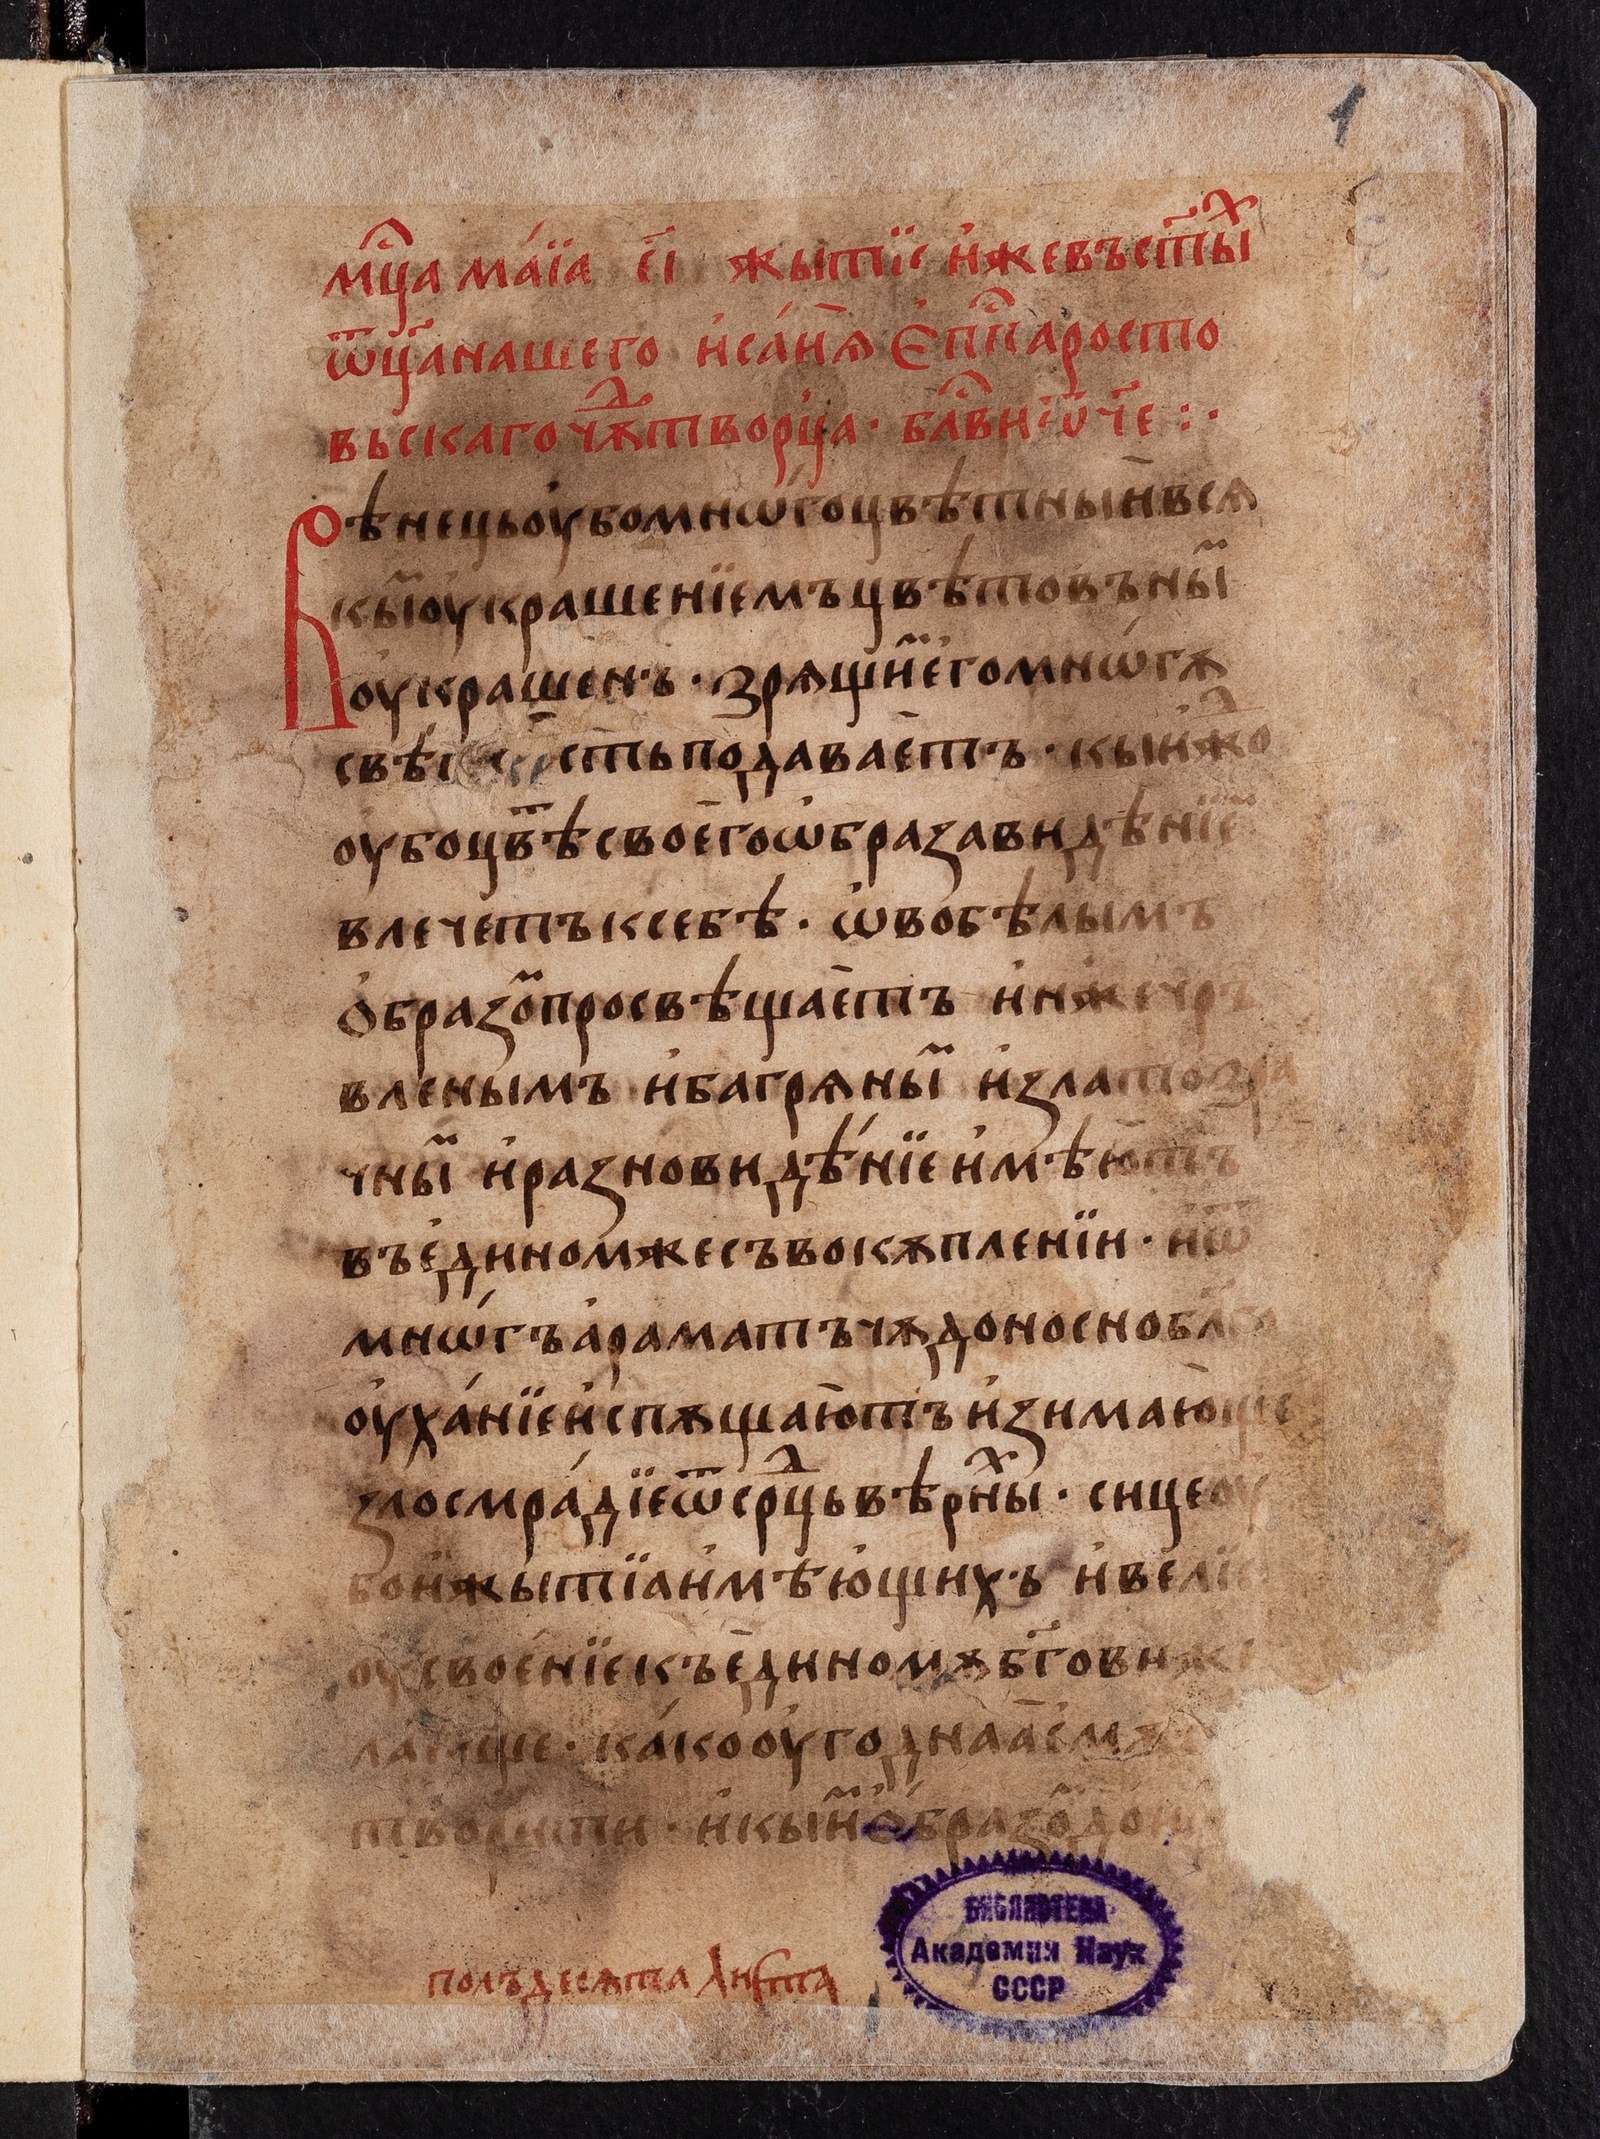 1
мц҃а ма́їа е҃і жытїе и҆же въ ст҃ы́х
ѿц҃а нашего и҆са́и҆ѧ е҆пⷭ҇па росто
вьскаго чю҃ѫтворца · блⷭ҇ви ѿч҃е : ·
Вѣнець оубо мнѡ́гоцвѣтный вся
кы̏ оукрашенїемъ цвѣтовъны̏
оукрашенъ · зрѧщи̏ е҆го мнѡ́гѫ
подаваѐтъ · кы́йжо
оубо цвѣ̏ своего ѡ҆браза видѣнїе
влечетъ к себѣ · ѡ҆во бѣлымъ
о҆бразо̏ просвѣщаѐтъ и҆н же чръ
вленымъ и҆ багрѧны̏ и҆ златозра
чны̏ и҆ разно видѣ́нїе и҆мѣютъ
въ е҆дином же съвокѫпленїи · и҆ ѿ
мнѡ́гъ а҆раматъ чѫдоносно бл҃го
оуха́нїе и҆спѫщаю҆тъ и҆зимаю҆ще
злосмра́дїе ѿ срⷣць вѣрны́х · сице оу
бо и҆ жытїа и҆мѣю҆щихъ и҆ ве́лїе
оусвое́нїе къ е҆диномѫ бг҃ови
ка́ко оу҆годнаа е҆мѫ
творити · и҆ кы̏и҆ о҆бразо̏
полъдесѧта листа
БИБЛИОТЕКА
Академии Наук
СССР